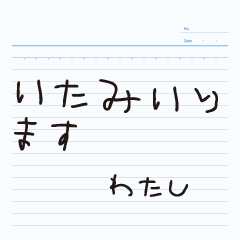 No.
Date
いたみいり
ます
わたし